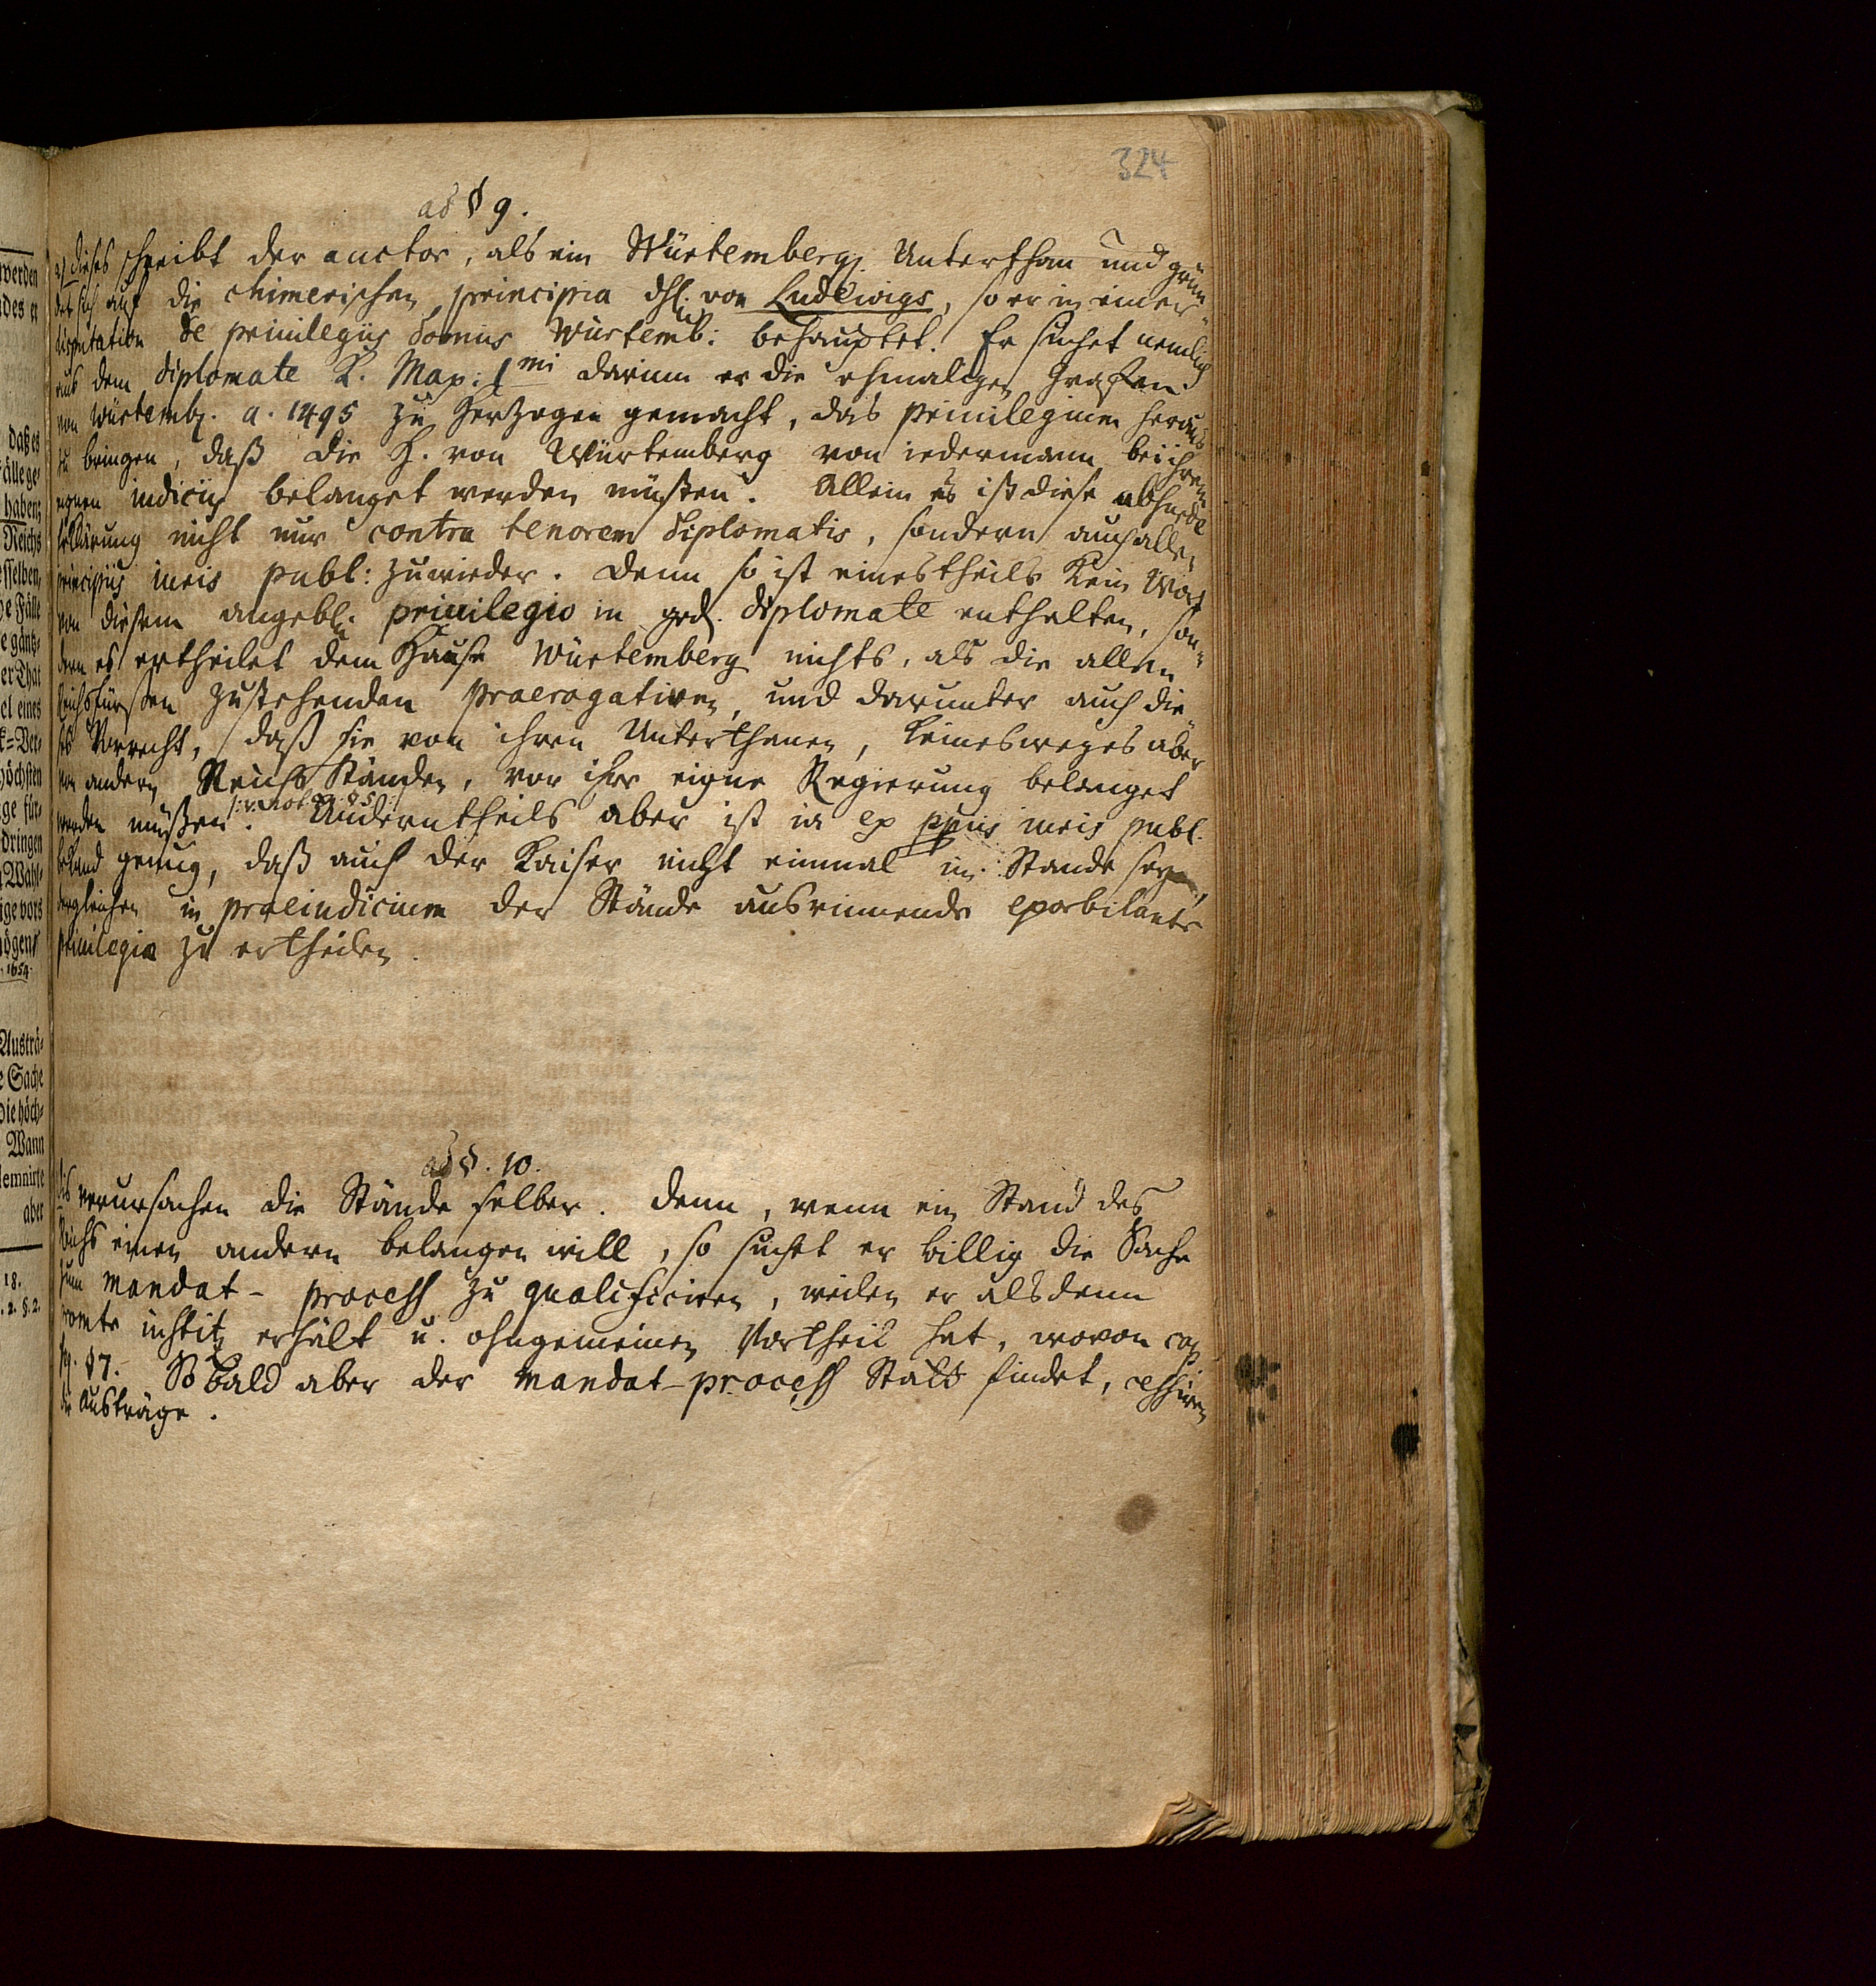 324
ad § 9.
a) dieses schreibt der auctor, als ein Würtemberg. Unterthan und grün-
det sich auf die chimerischen principia dH. von Ludewigs, so er in einer
disputation de privilegiis domus Würtemb: behauptet. Er suchet nemlich
aus dem diplomate K. Max: I mi darinn er die ehmaligen Grafen
von Würtemb. a. 1495 zu Herzogen gemacht, das privilegium heraus
zu bringen, daß die H. von Würtemberg von iedermann bei ihren
eignen iudiciis belanget werden müßten. Allein es ist diese absurde
Erklärung nicht nur contra tenorem diplomatis, sondern auch allen
principiis iuris publ: zuwieder. Denn so ist einestheils kein Wort
von diesem angebl. privilegio in ged. diplomate enthalten, son-
dern es ertheilet dem Hause Würtemberg nichts, als die allen
Reichsfürsten zustehenden praerogativen, und darunter auch die-
ses Vorrecht, daß sie von ihren Unterthanen, keinesweges aber
von andern Reichs Ständen, vor ihre eigne Regierung belanget
werden müßen. Anderntheils aber ist ia ex ppiis iuris publ.
bekand genug, daß auch der Kaiser nicht einmal im Stande sey,
dergleichen in praeiudicium der Stände ausrinnende exorbitante
privilegia zu ertheilen.
ad §. 10.
dis verursachen die Stände selber. Denn, wenn ein Stand des
Reichs einen andern belangen will, so suchet er billig die Sache
zum mandat-process zu qualificiren, weilen er alsdenn
promte iustitz erhält u. ohngemeinen Vortheil hat, wovon cap
sq. § 7. So bald aber der mandat-process Statt findet, cessiren
die Austräge.
werden
des
daß es
Fälle ge-
haben
Reichs
desselben
Fälle
eines
höchsten
dringen
1654.
Austrä-
Sache
die höch-
Wann
aber
18.
2. §. 2.